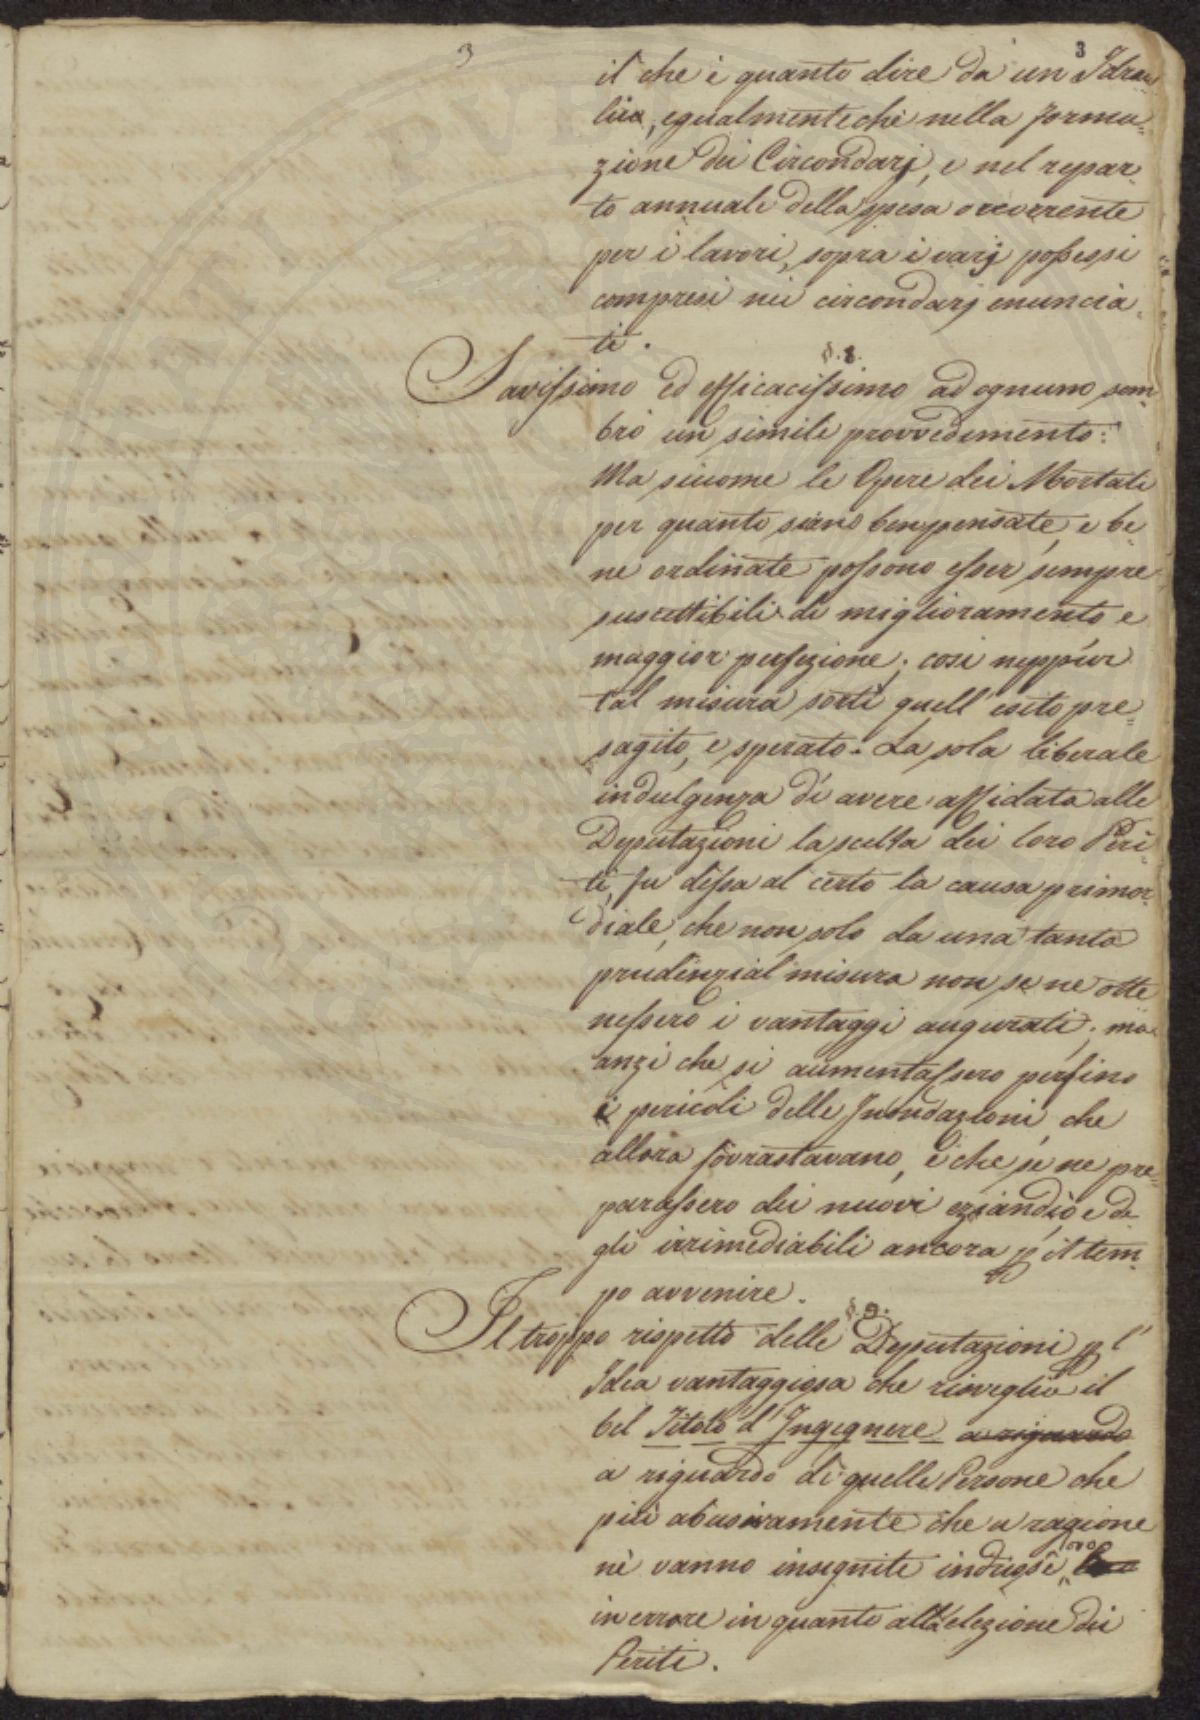 3
3
il che è quanto dire da un Idrau
lico, egualmenteche nella forma=
zione dei Circondarj, e nel repar=
to annuale della spesa occorrente
per i lavori, sopra i varj possessi
compresi nei circondarj enuncia=
ti.
§. 8.
Savissimo ed efficacissimo ad ognuno sem=
brò un simile provvedimento:
Ma siccome le Opere dei Mortali
per quanto siano benpensate, e be=
ne ordinate possono esser sempre
suscettibili di miglioramento e
maggior perfezione; così neppur
tal misura sortì quell' esito pre=
sagito, e sperato. La sola liberale
indulgenza di avere affidata alle
Deputazioni la scelta dei loro Peri=
ti, fu dessa al certo la causa primor=
diale, che non solo da una tanto
prudenzial misura non se ne otte
nessero i vantaggi augurati; ma
anzi che si aumentassero perfino
i pericoli delle Inondazioni, che
allora sovrastavano, e che se ne pre=
parassero dei nuovi eziandio e de
gli irrimediabili ancora p il tem=
po avvenire.
§. 9.
Il troppo rispetto delle Deputazioni p l'
Idea vantaggiosa che risvegliò il
bel Titolo d'Ingegnere a riguardo
a riguardo di quelle Persone che
più abusivamente che a ragione
ne vanno insegnite indusse
in errore in quanto alla elezione dei
Periti.